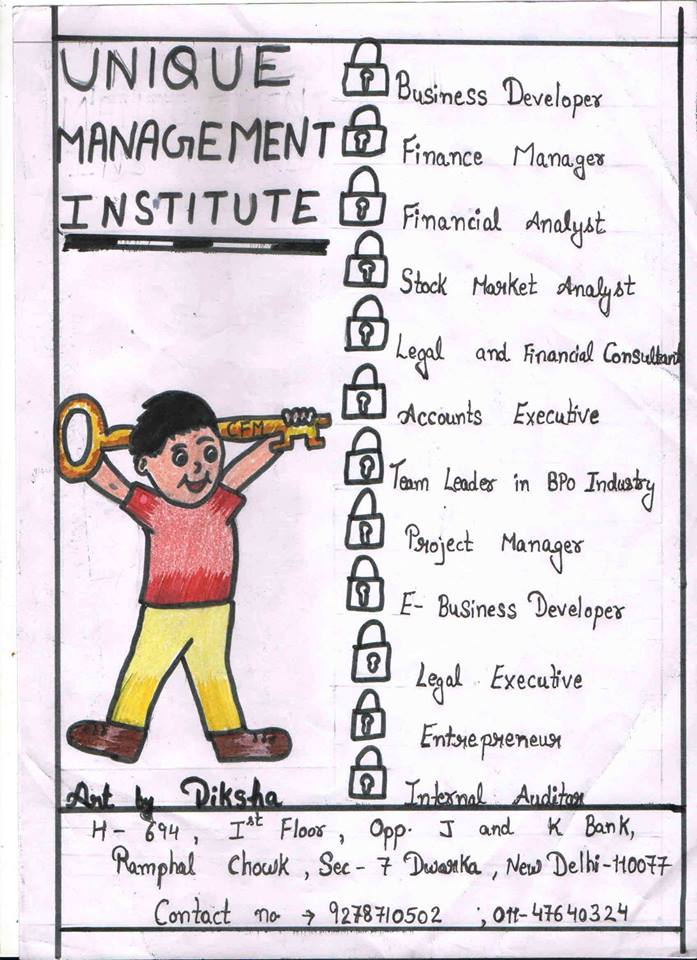 UNIQUE
MANAGEMENT
INSTITUTE
Business Developer
Finance Manager
Financial Analyst
Stock Market Analyst
Legal and Financial Consultant
Accounts Executive
Team Leader in BPO Industry
Project Manager
E- Business Developer
Legal Executive
Entrepreneur
Internal Auditor
CFM
Art by Diksha
H- 694, Ist Floor, Opp. J and K Bank,
Ramphal Chowk, Sec- 7 Dwarka, New Delhi-110077
Contact no → 9278710502 ; 011-47640324